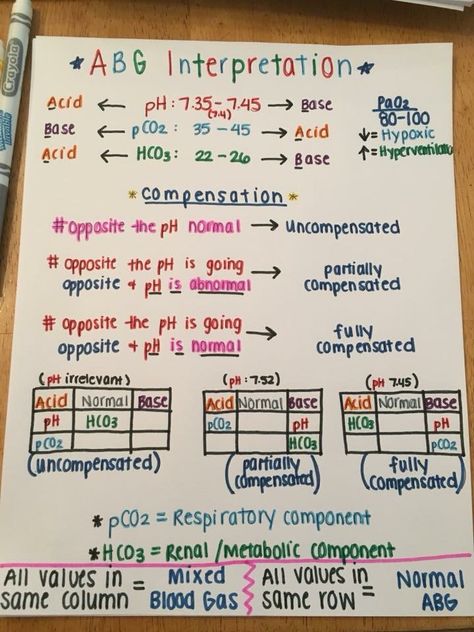 Crayola
*ABG Interpretation*
Acid ← pH: 7.35-7.45 → Base
(7.4)
Base ← pCO2: 35-45 → Acid
Acid ← HCO3: 22-26 → Base
PaO2
80-100
↓= Hypoxic
↑= Hyperventilatn
*Compensation*
#opposite the pH normal → uncompensated
# opposite the pH is going
opposite + pH is abnormal → partially
compensated
# opposite the pH is going
opposite + pH is normal → fully
compensated
(pH irrelevant)
Acid Normal Base
pH HCO3
pCO2
(uncompensated)
(pH: 7.52)
Acid Normal Base
pCO2 pH
HCO3
(partially
compensated)
(pH 7.45)
Acid Normal Base
HCO3 pH
pCO2
(fully
compensated)
*pCO2 = Respiratory component
*HCO3 = Renal/Metabolic component
All values in
same column = Mixed
Blood Gas
All values in
same row = Normal
ABG